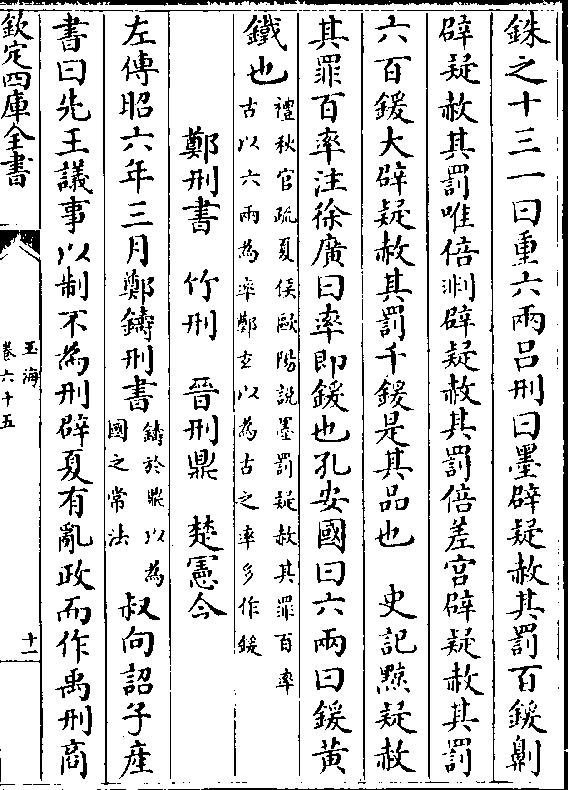 銖之十三一曰重六兩吕刑曰墨辟疑赦其罰百鍰劓
辟疑赦其罰唯倍剕辟疑赦其罰倍差宫辟疑赦其罰
六百鍰大辟疑赦其罰千鍰是其品也　史記黥疑赦
其罪百率注徐廣曰率即鍰也孔安國曰六兩曰鍰黄
鐵也禮秋官疏夏侯歐陽説墨罰疑赦其罪百率
古以六兩為率鄭玄以為古之率多作鍰
鄭刑書　竹刑　晉刑鼎　楚憲令
左傳昭六年三月鄭鑄刑書鑄於鼎以為
國之常法叔向詔子産
書曰先王議事以制不為刑辟夏有亂政而作禹刑商
欽定四庫全書
玉海
卷六十五
十一